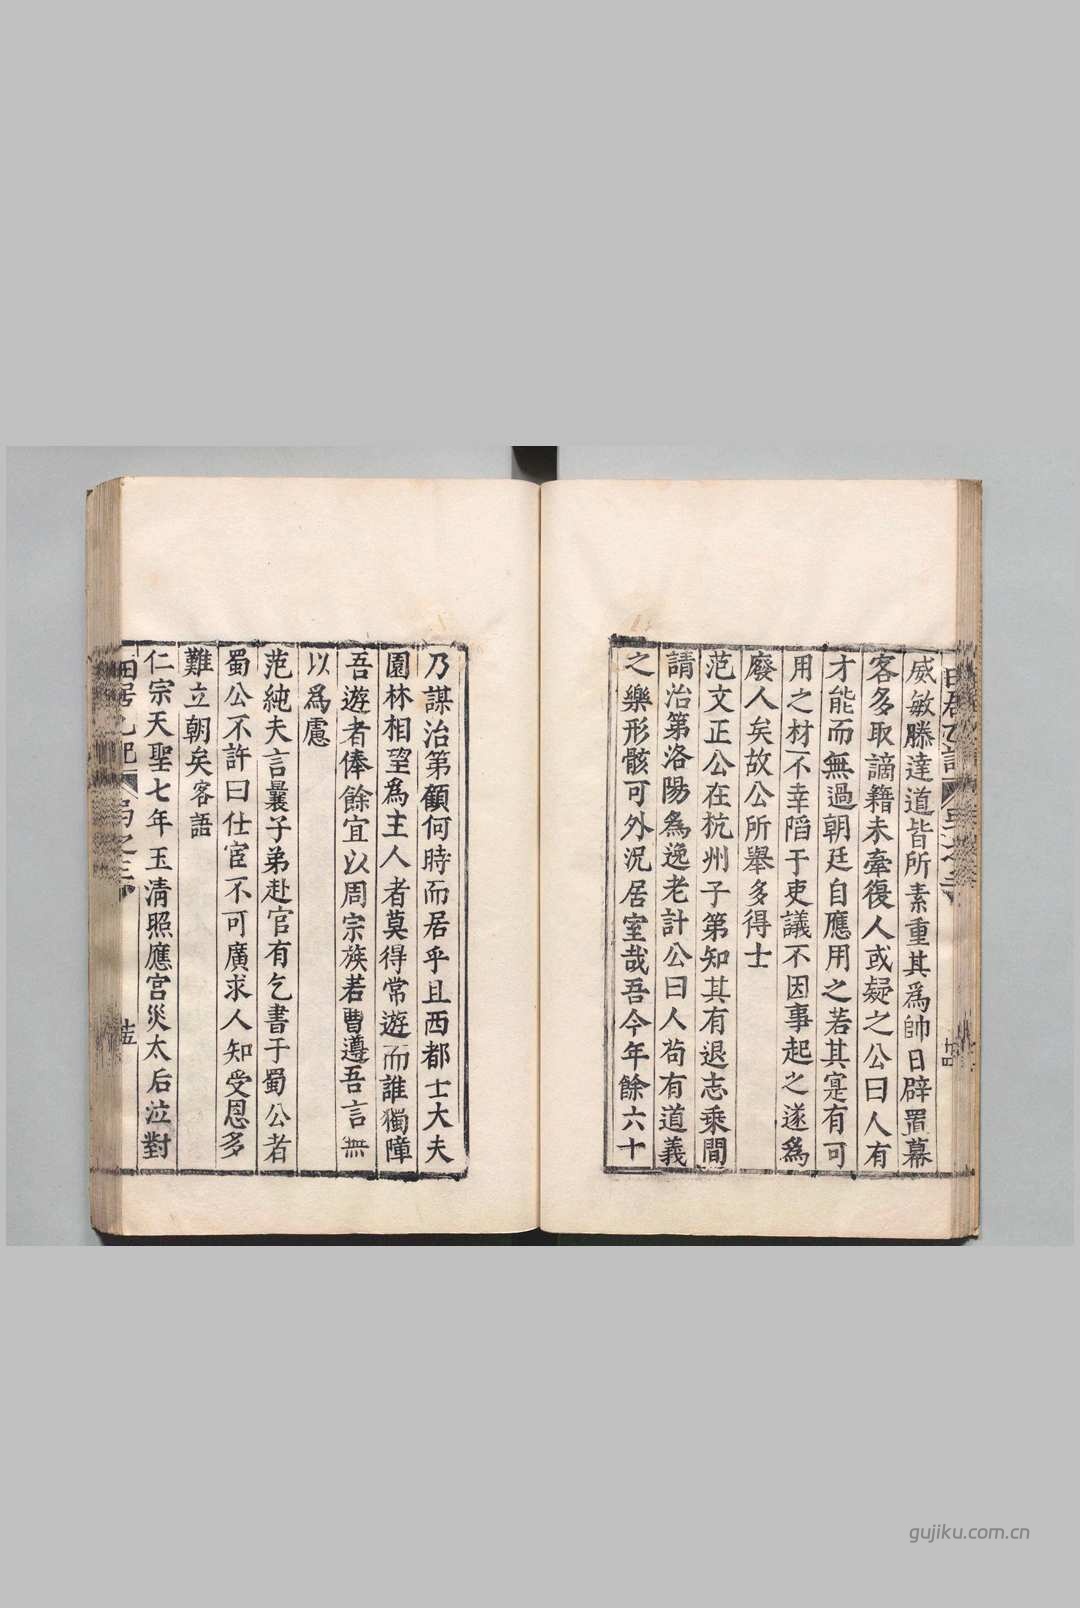 威敏滕達道皆所素重其爲帥日辟置幕
客多取謫籍未牽復人或疑之公曰人有
才能而無過朝廷自應用之若其寔有可
用之材不幸䧟于吏議不因事起之遂爲
廢人矣故公所舉多得士
范文正公在杭州子第知其有退志乘間
請治第洛陽爲逸老計公曰人苟有道義
之樂形骸可外況居室哉吾今年餘六十
乃謀治第顧何時而居乎且西都士大夫
園林相望爲主人者莫得常遊而誰獨障
吾遊者俸餘宜以周宗族若曹遵吾言無
以爲慮
范純夫言曩子弟赴官有乞書于蜀公者
蜀公不許曰仕宦不可廣求人知受恩多
難立朝矣客語
仁宗天聖七年玉清照應宮災太后泣對
田居乙記
十五
gujiku.com.cn